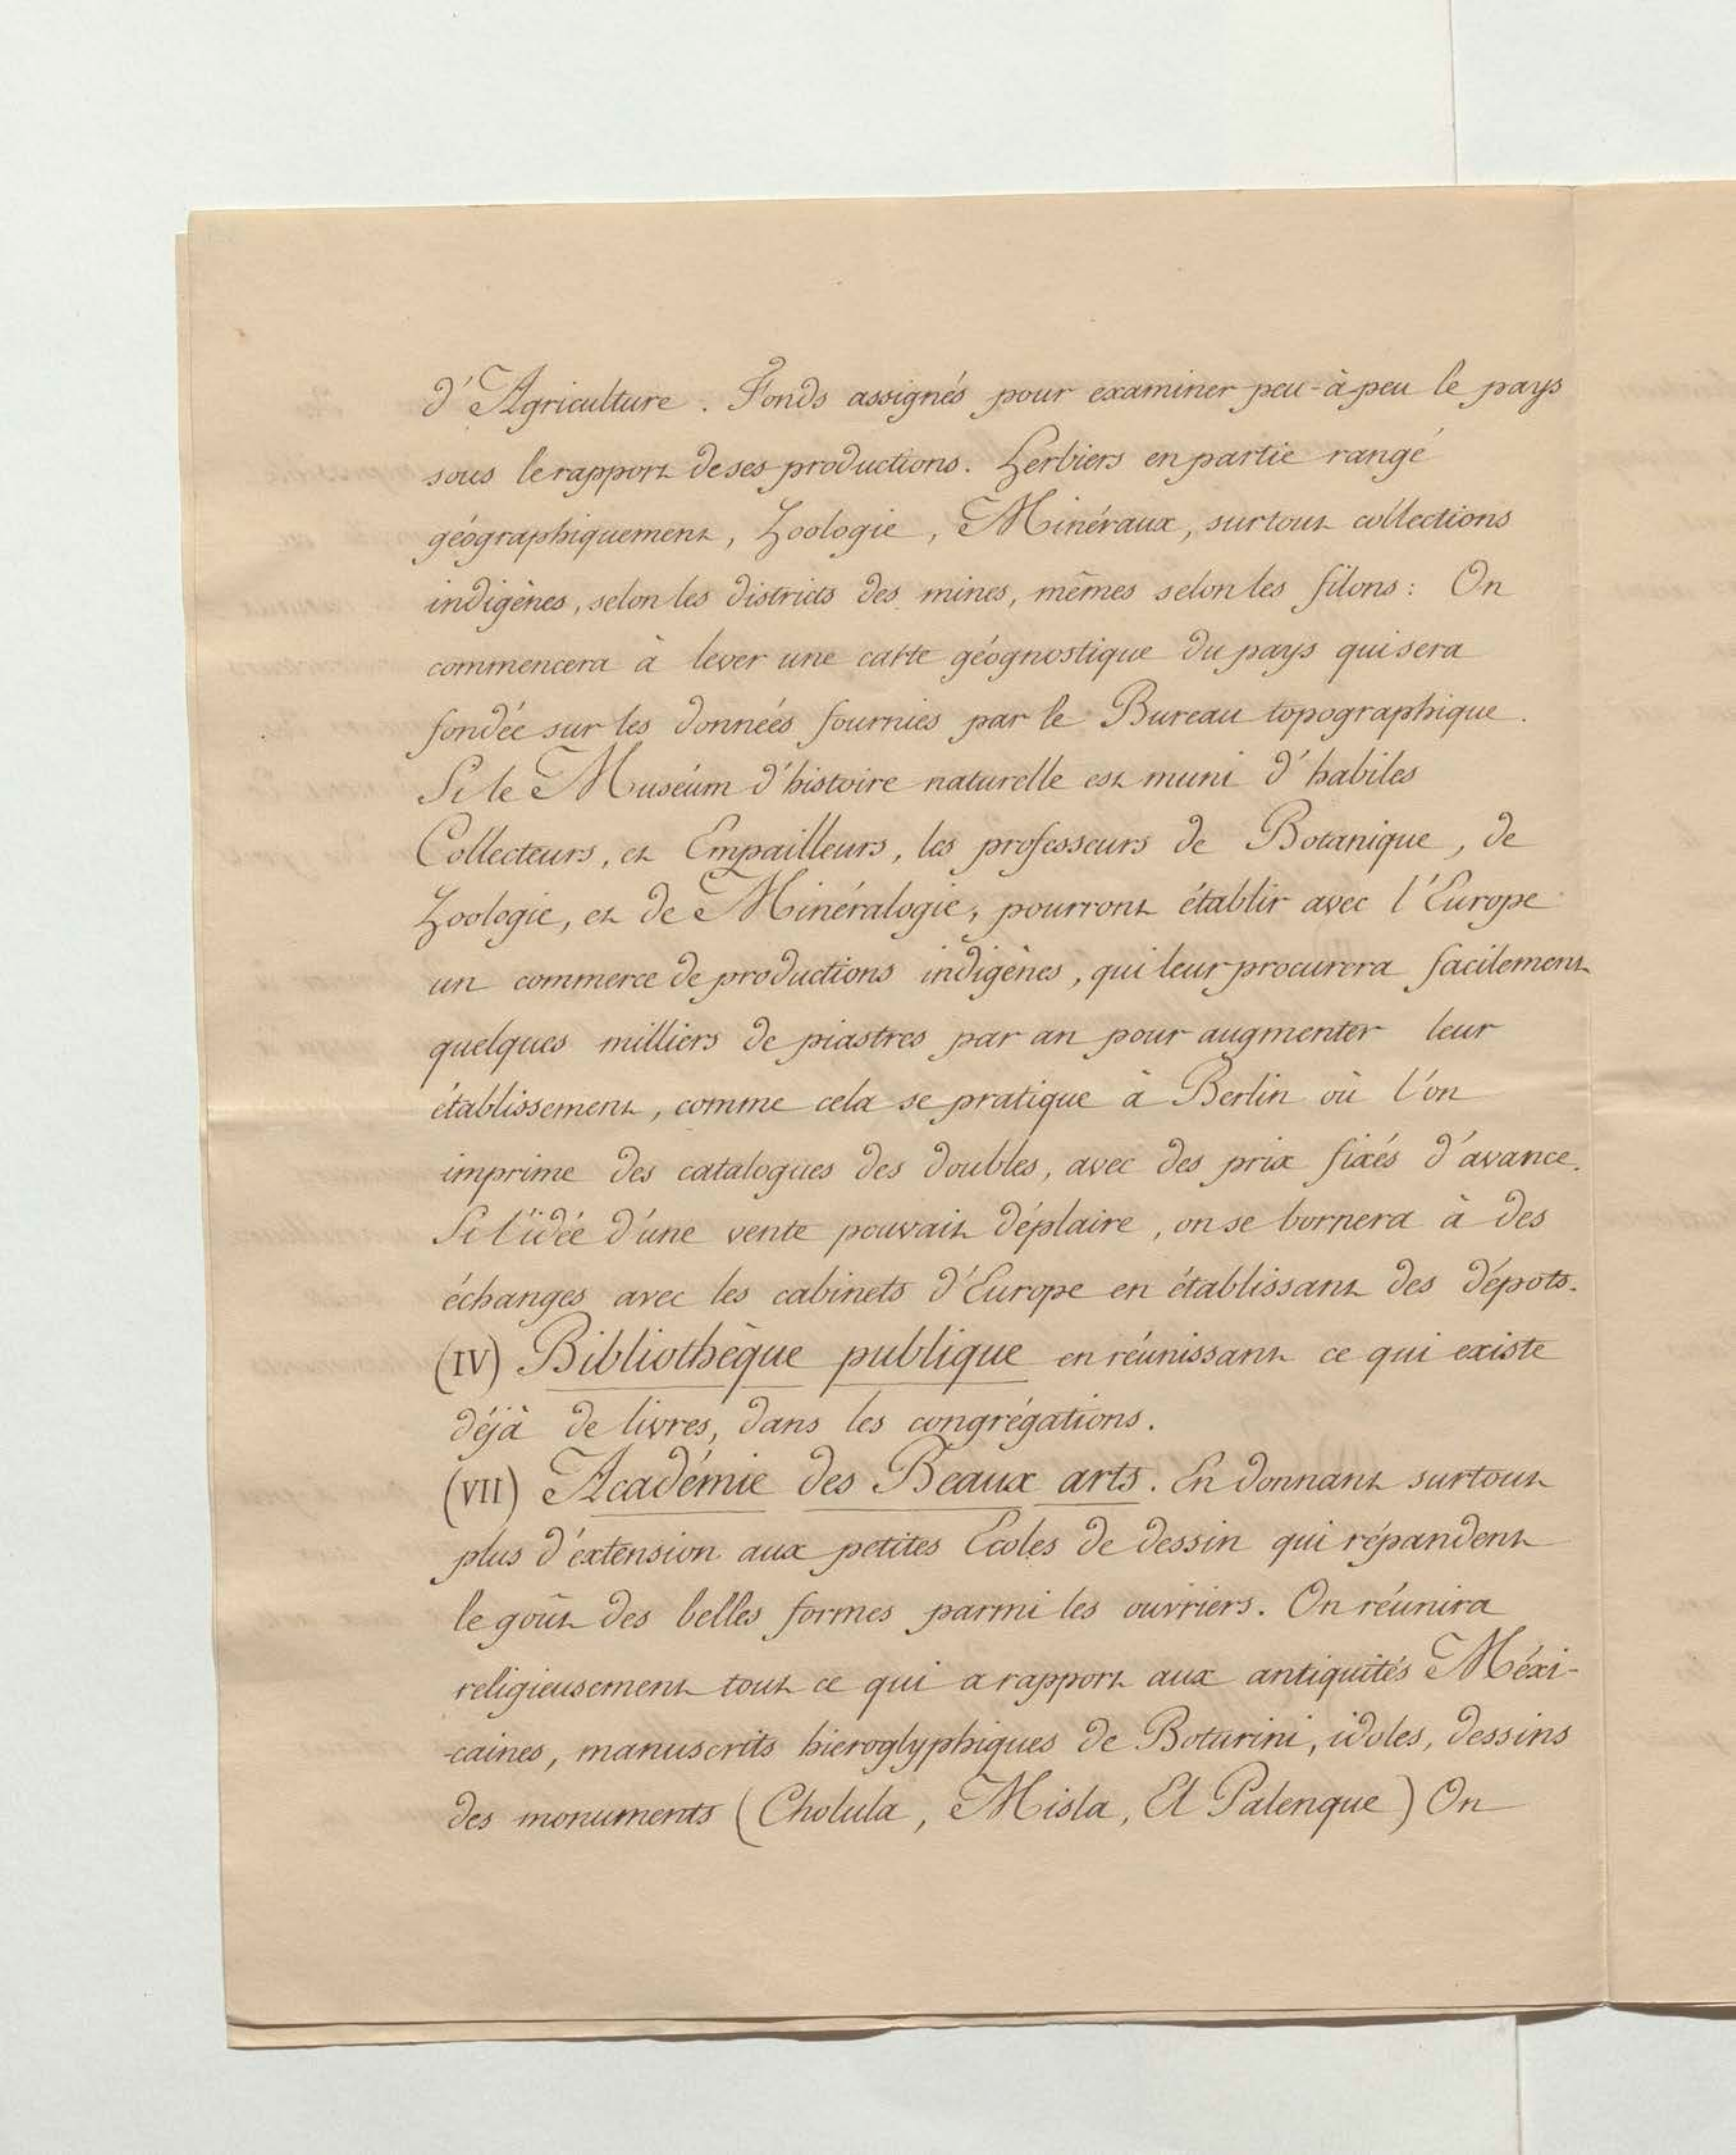 d'Agriculture. Fonds assignés pour examiner peu-à peu le pays
sous le rapport de ses productions. Herbiers en partie rangé
géographiquement, Zoologie, Minéraux, surtout collections
indigènes, selon les districts des mines, mêmes selon les filons: On
commencera à lever une carte géognostique du pays qui sera
fondée sur les données fournies par le Bureau topographique.
Si le Muséum d'histoire naturelle est muni d'habiles
Collecteurs, et Empailleurs, les professeurs de Botanique, de
Zoologie, et de Minéralogie, pourront établir avec l'Europe
un commerce de productions indigènes, qui leur procurera facilement
quelques milliers de piastres par an pour augmenter leur
établissement, comme cela se pratique à Berlin où l'on
imprime des catalogues des doubles, avec des prix fixés d'avance.
Si l'idée d'une vente pouvait déplaire, on se bornera à des
échanges avec les cabinets d'Europe en établissant des dépots.
(IV) Bibliothèque publique en réunissant ce qui existe
déjà de livres, dans les congrégations.
(VII) Académie des Beaux arts. En donnant surtout
plus d'éxtension aux petites Ecoles de dessin qui répandent
le goût des belles formes parmi les ouvriers. On réunira
religieusement tout ce qui a rapport aux antiquités Méxi-
-caines, manuscrits hieroglyphiques de Boturini, idoles, dessins
des monuments (Cholula, Misla, El Palenque) On